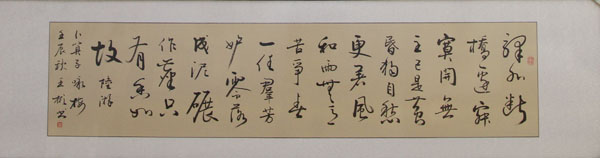 驛外斷
橋邊寂
寞開無
主已是黃
昏獨自愁
更著風
和雨無意
苦爭春
一任羣芳
妒零落
成泥碾
作塵只
有香如
故 陸游
卜算子 詠梅
壬辰秋王書